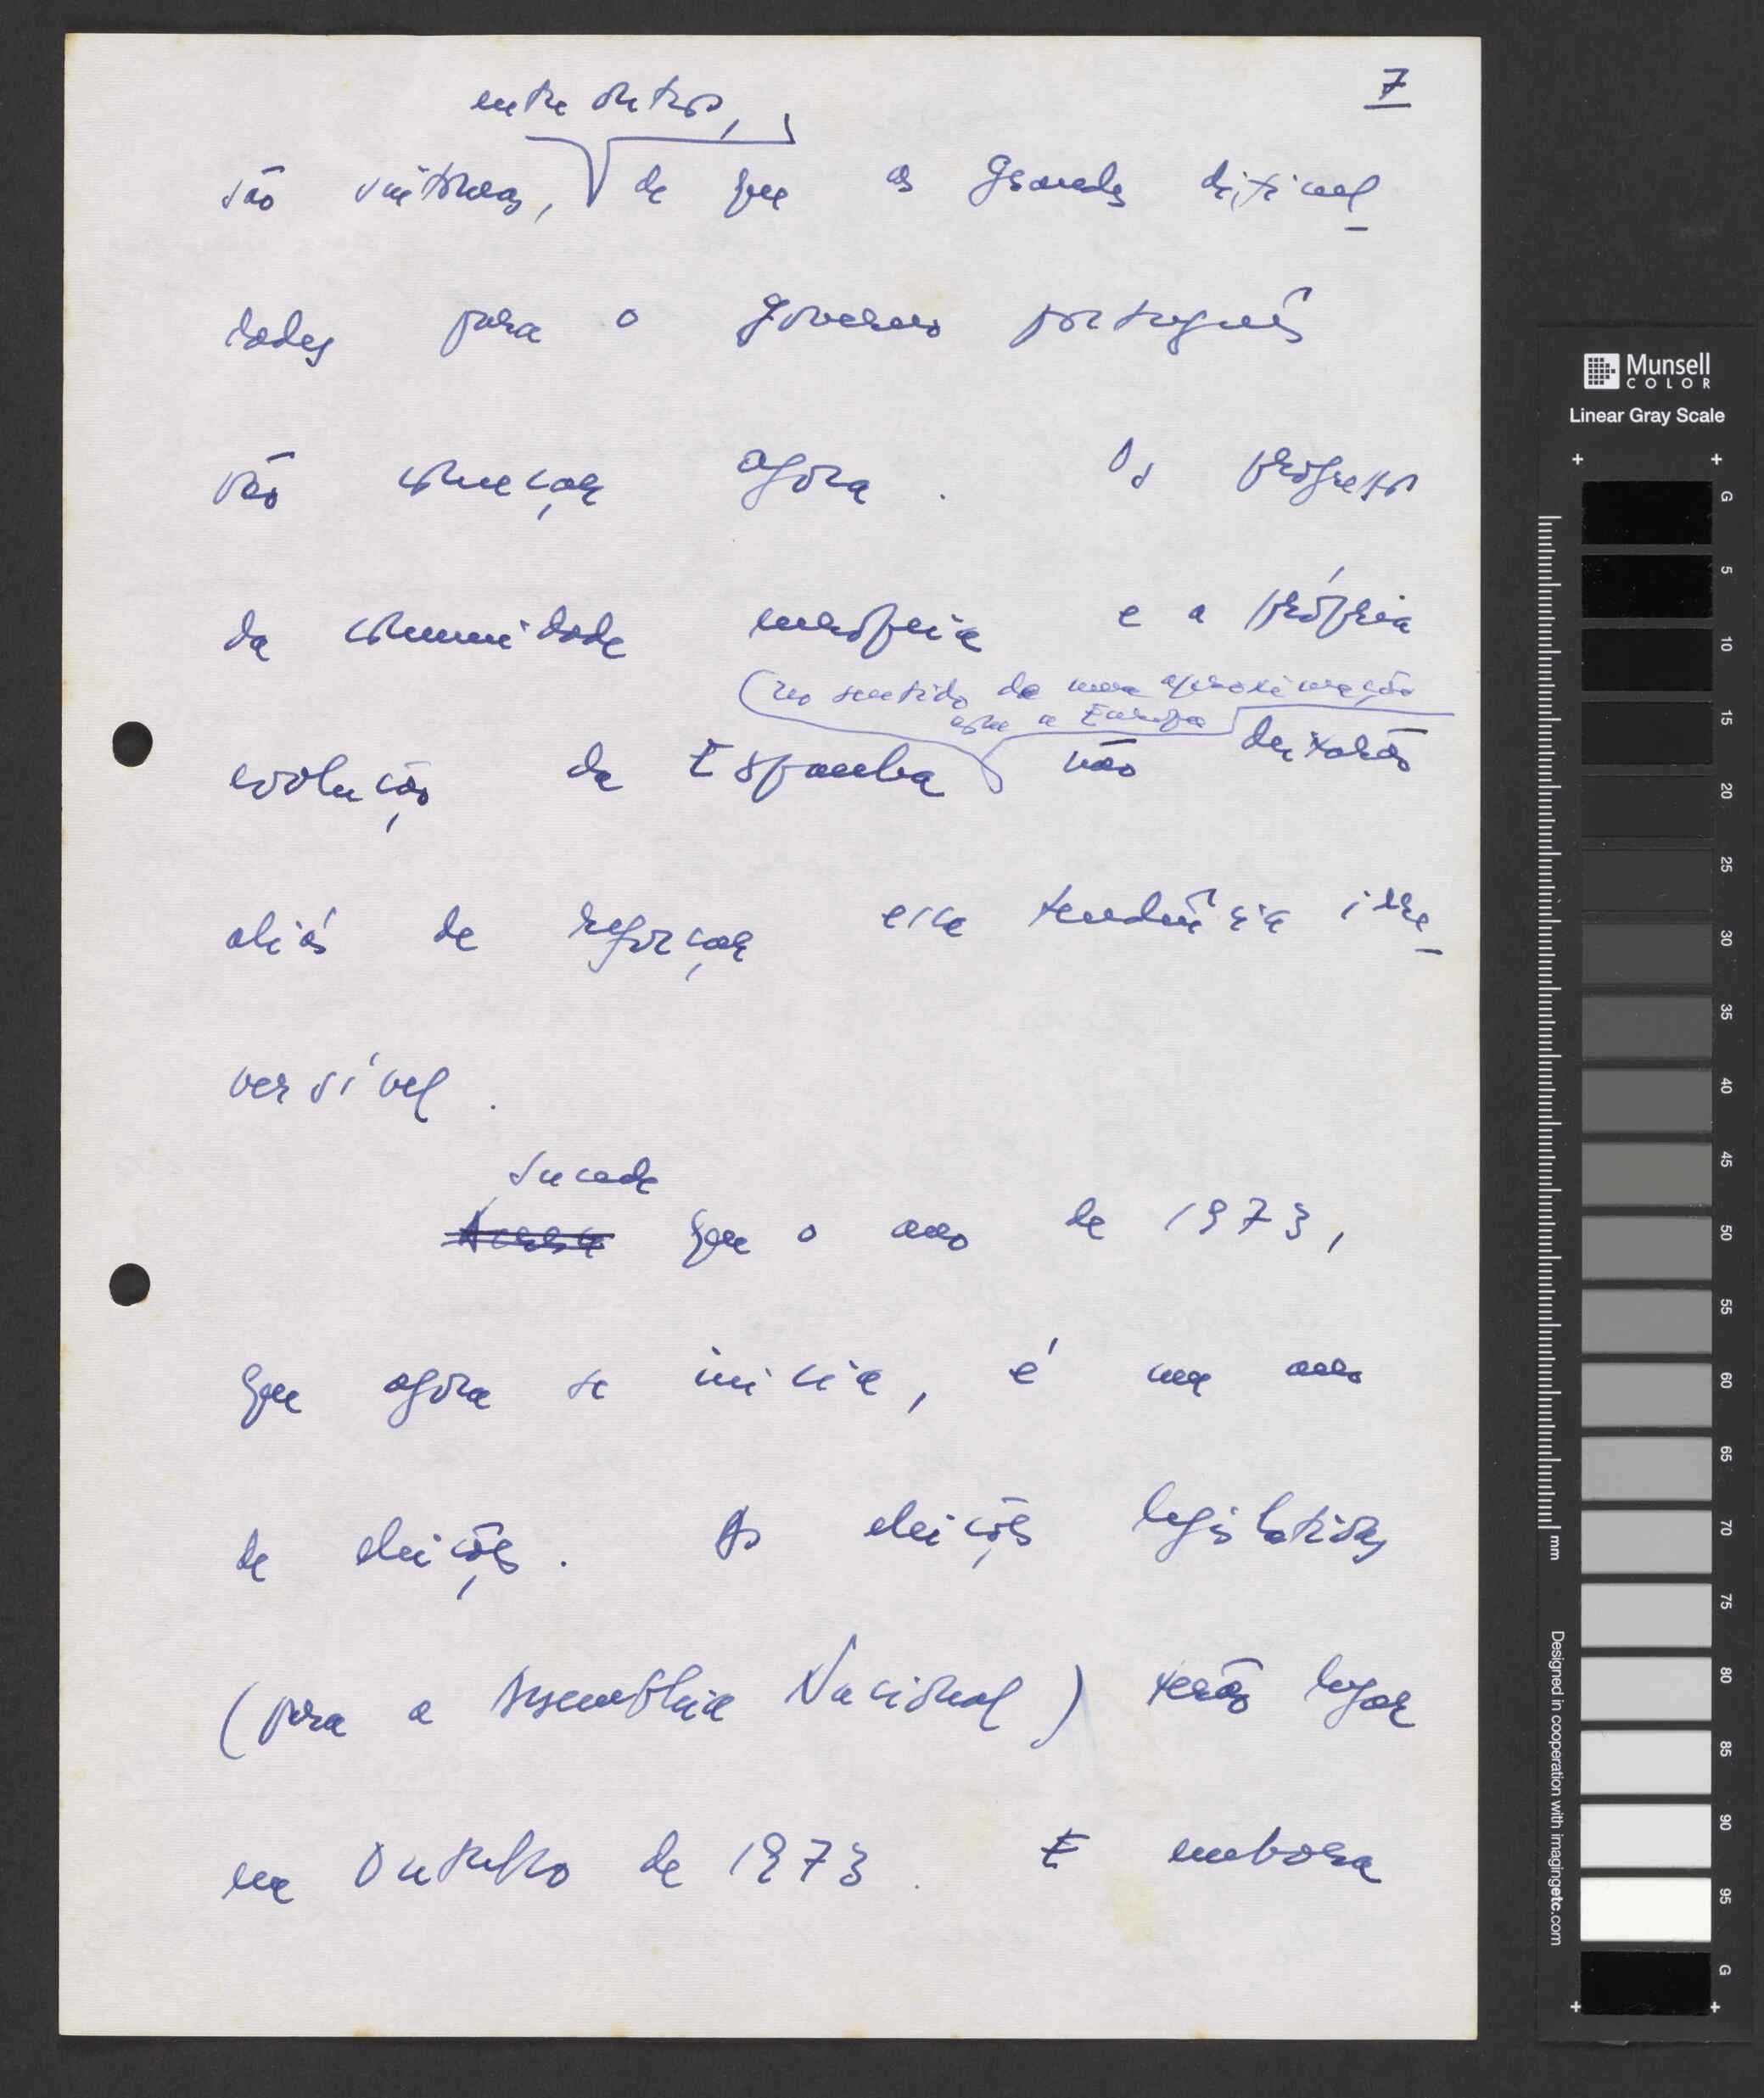 7
entre outros,
são sintomas, de que as grandes dificul-
dades para o governo português
vão começar agora. Os progressos
da comunidade europeia e a própria
(no sentido de uma aproximação
com a Europa)
evolução da Espanha não deixarão
aliás de reforçar essa tendência irre-
versível.
Sucede
que o ano de 1973,
que agora se inicia, é um ano
de eleições. As eleições legislativas
(para a Assembleia Nacional) terão lugar
em Outubro de 1973. E embora
Munsell
COLOR
Linear Gray Scale
G
5
10
15
20
25
30
35
40
45
50
55
60
65
70
75
80
85
90
95
G
mm
Designed in cooperation with imagingetc.com